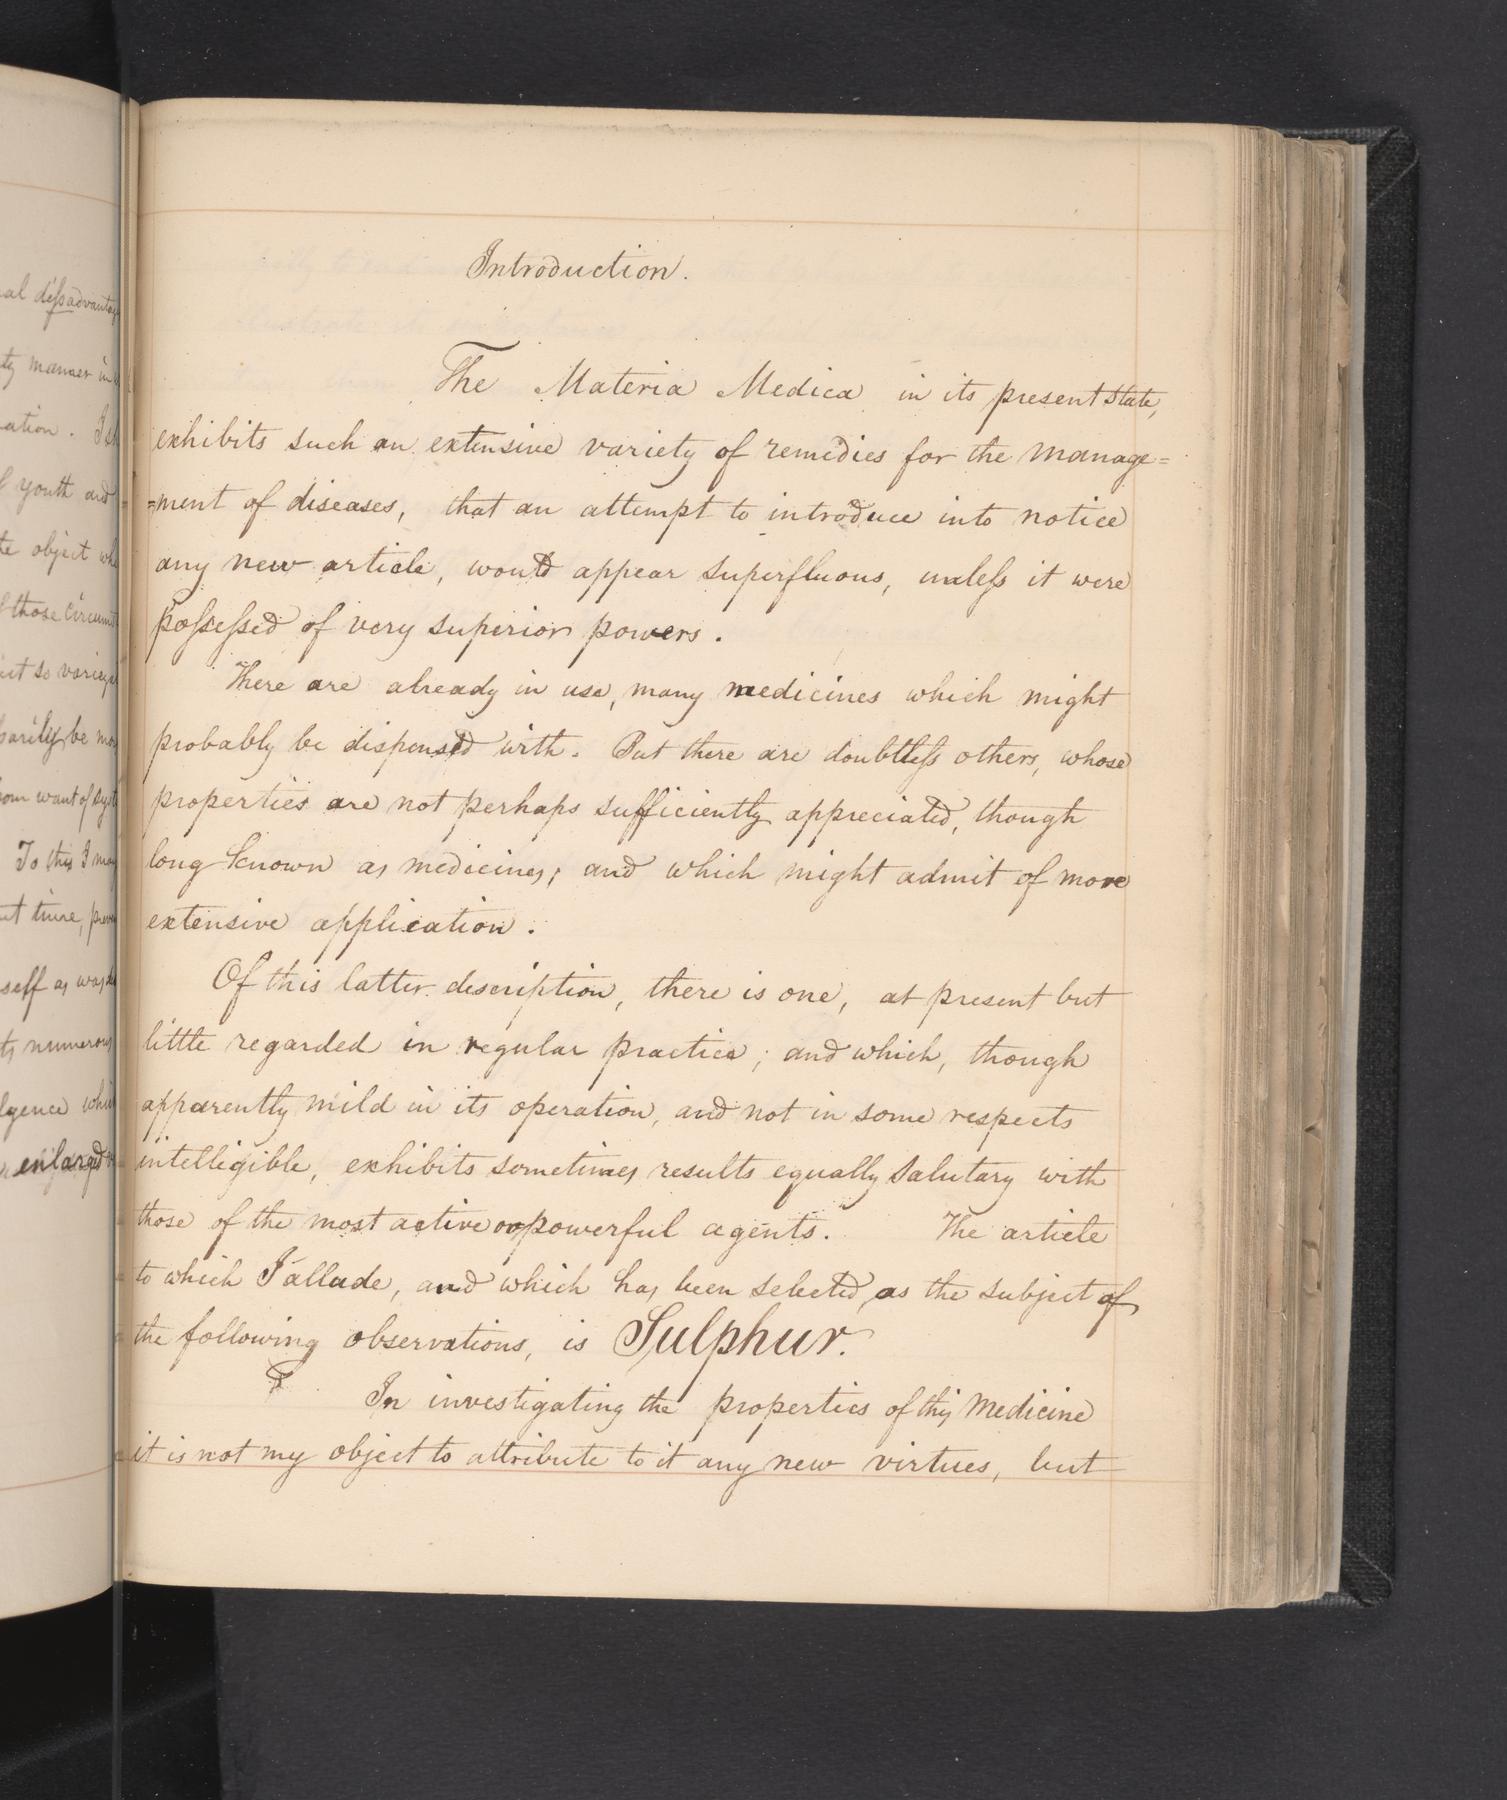 al dissadvantag
ty manner in
ation. I
f youth and
te object
f those circum
ct so varieg
sarily be mo
from want of syst
To this I may
ut time, prev
self as was
ts numerous
lgence whi
enlarged
Introduction.
The Materia Medica in its present state,
exhibits such an extensive variety of remedies for the manage=
=ment of diseases, that an attempt to introduce into notice
any new article, would appear superfluous, unless it were
possessed of very superior powers.
There are already in use, many medicines which might
probably be dispensed with. But there are doubtless others, whose
properties are not perhaps sufficiently appreciated, though
long known as medicines; and which might admit of more
extensive application.
Of this latter description, there is one, at present but
little regarded in regular practice; and which, though
apparently mild in its operation, and not in some respects
intelligible, exhibits sometimes results equally salutary with
those of the most active or powerful agents. The article
to which I allude, and which has been selected, as the subject of
the following observations, is Sulphur.
In investigating the properties of this Medicine
it is not my object to attribute to it any new virtues, but